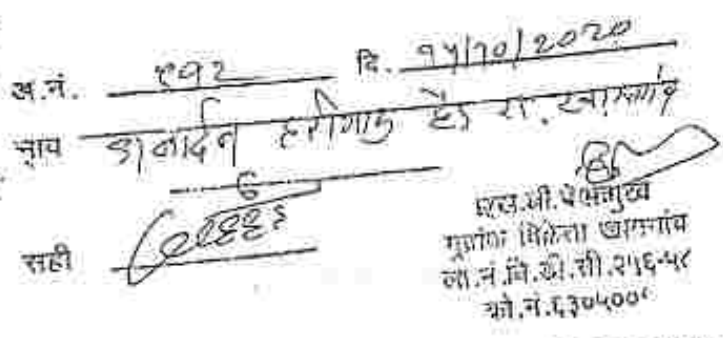 अ.नं. ९१२ दि. १५/१०/2020
नाव जनार्दन हरीभाऊ रा. खामगांव
सही
एस.बी.देशमुख
मुद्रांक विक्रेता खामगांव
ला.नं.वि.डी.सी.२५६-५८
को.नं.६३०५००१